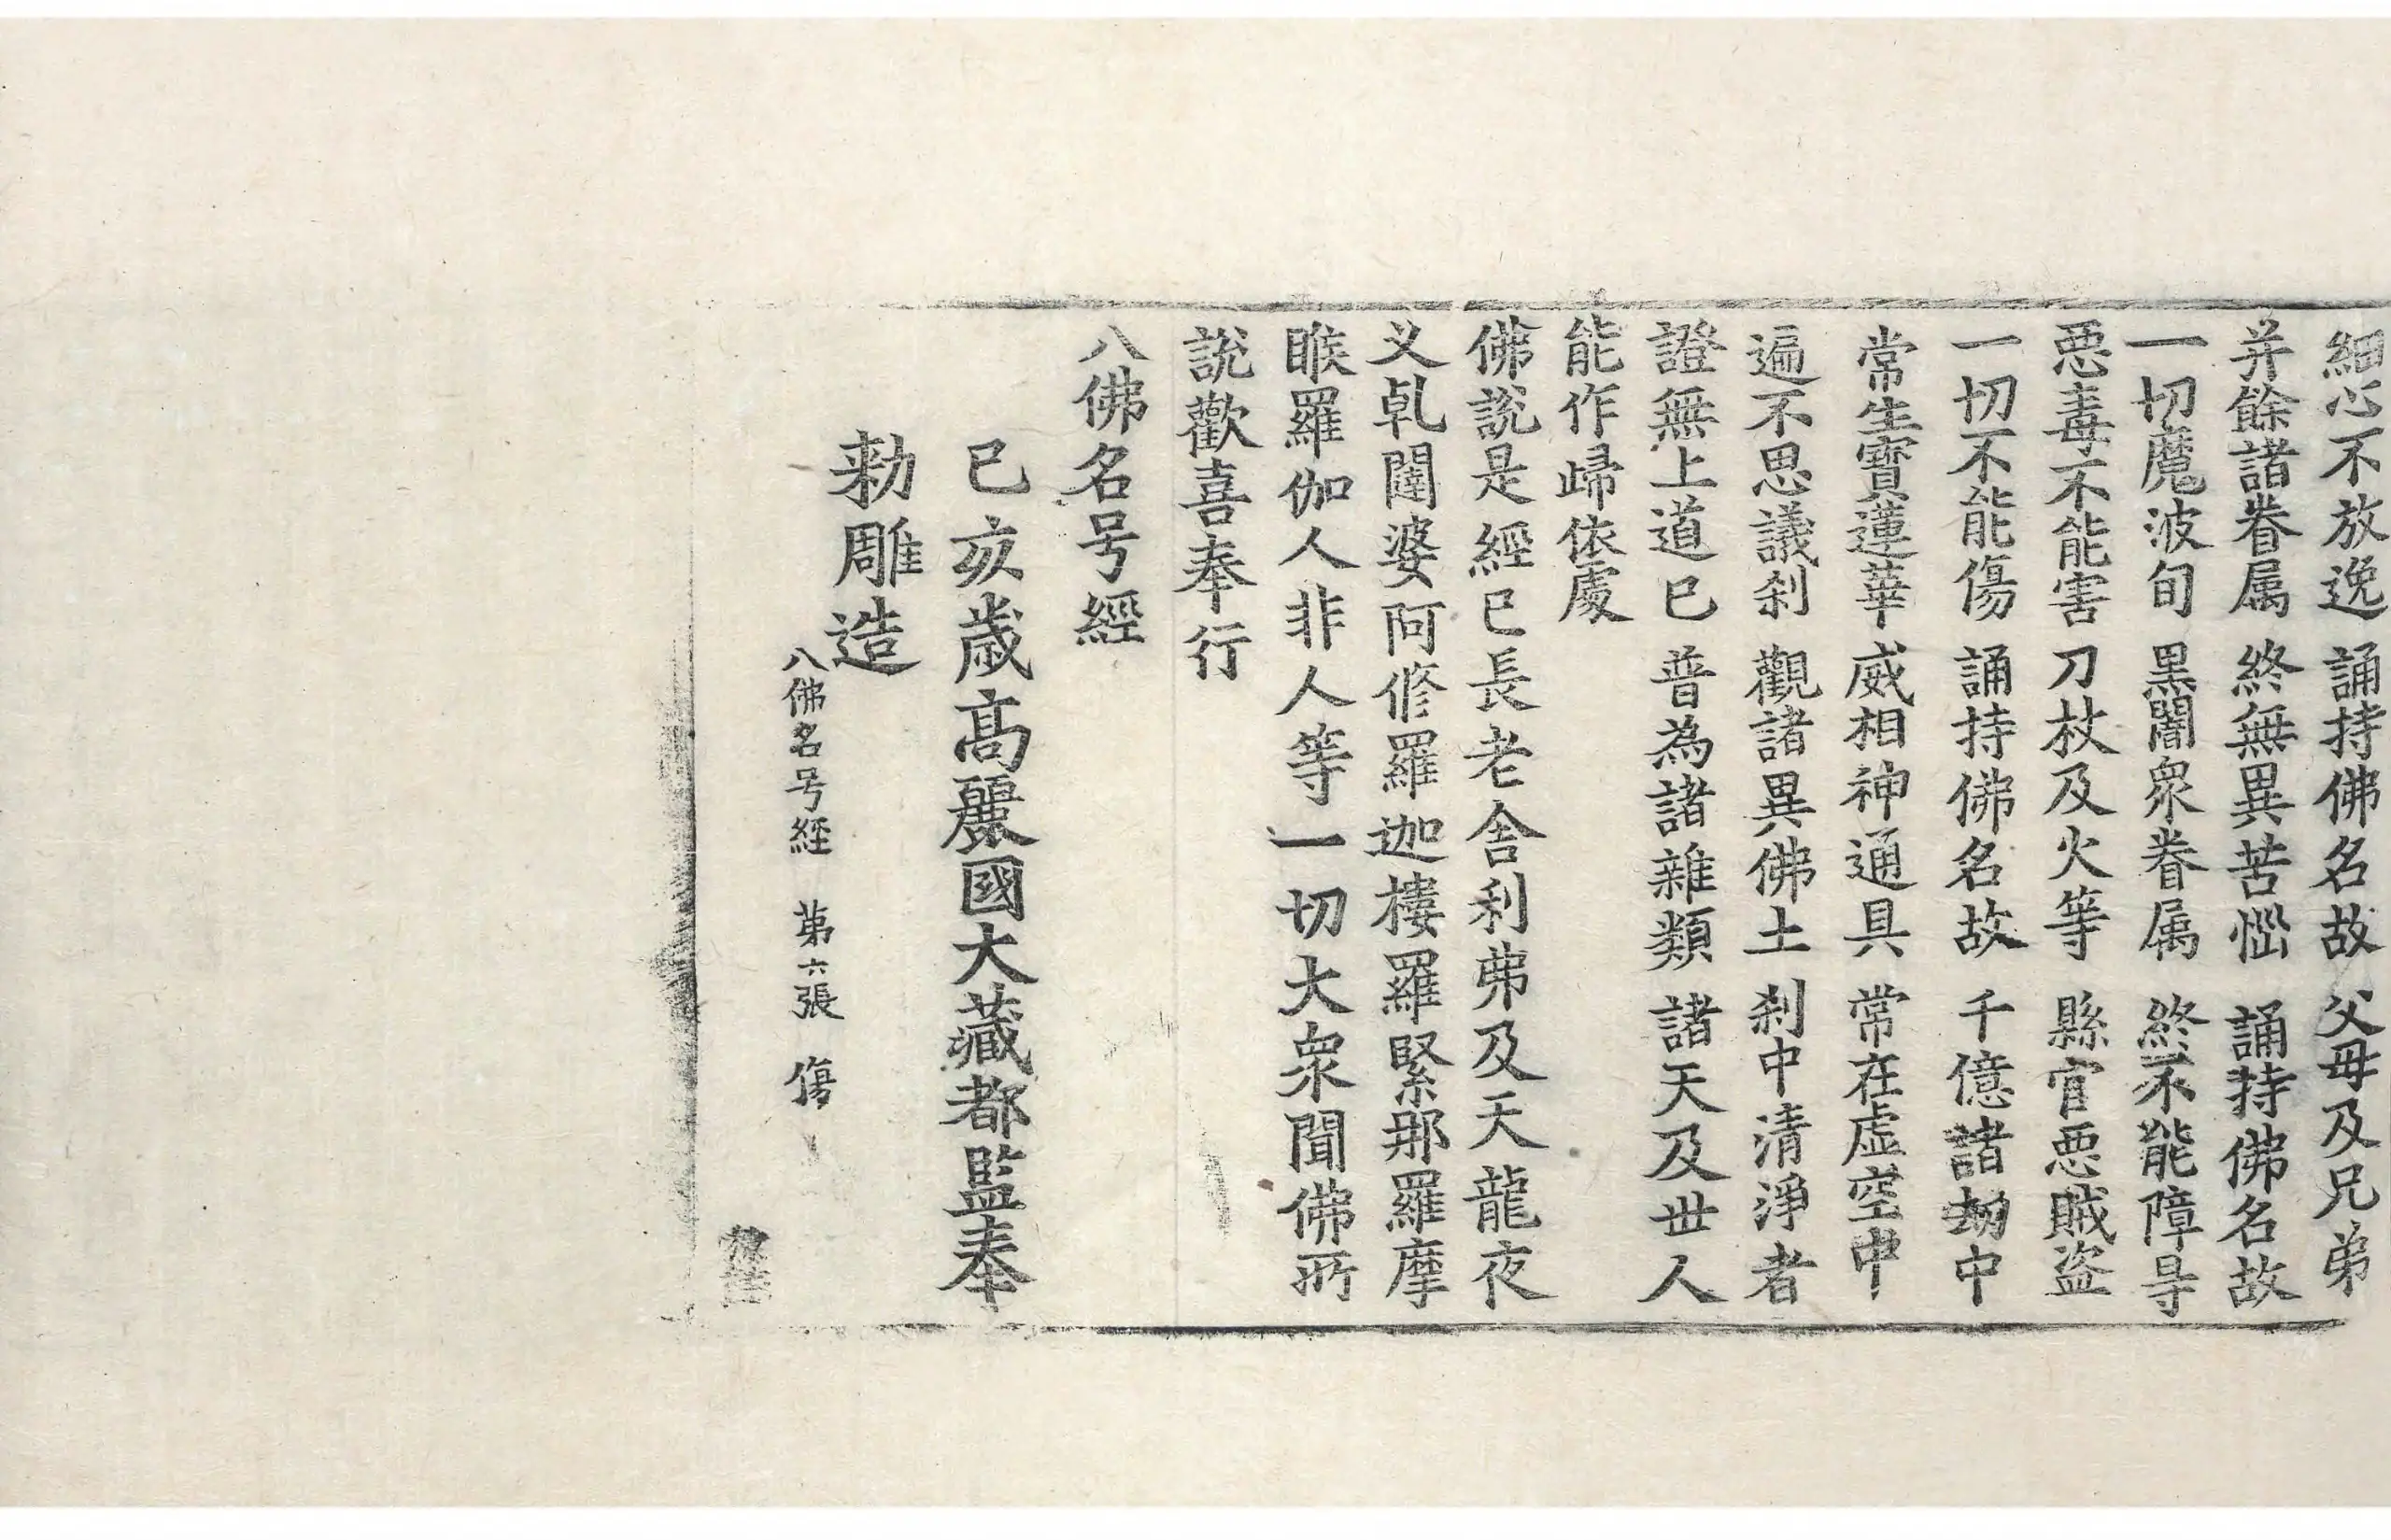 細心不放逸　誦持佛名故　父母及兄弟
并餘諸眷属　終無異苦惱　誦持佛名故
一切魔波旬　黒闇衆眷属　終不能障㝵
惡毒不能害　刀杖及火等　縣官惡賊盗
一切不能傷　誦持佛名故　千億諸劫中
常生寶蓮華　威相神通具　常在虚空中
遍不思議刹　觀諸異佛土　刹中清淨者
證無上道已　普為諸雜類　諸天及世人
能作歸依處
佛說是經已長老舎利弗及天龍夜
叉乹闥婆阿修羅迦樓羅緊那羅摩
睺羅伽人非人等一切大衆聞佛所
說歡喜奉行
八佛名号經
己亥歳高麗國大藏都監奉
勑雕造
八佛名号經　第六張　傷